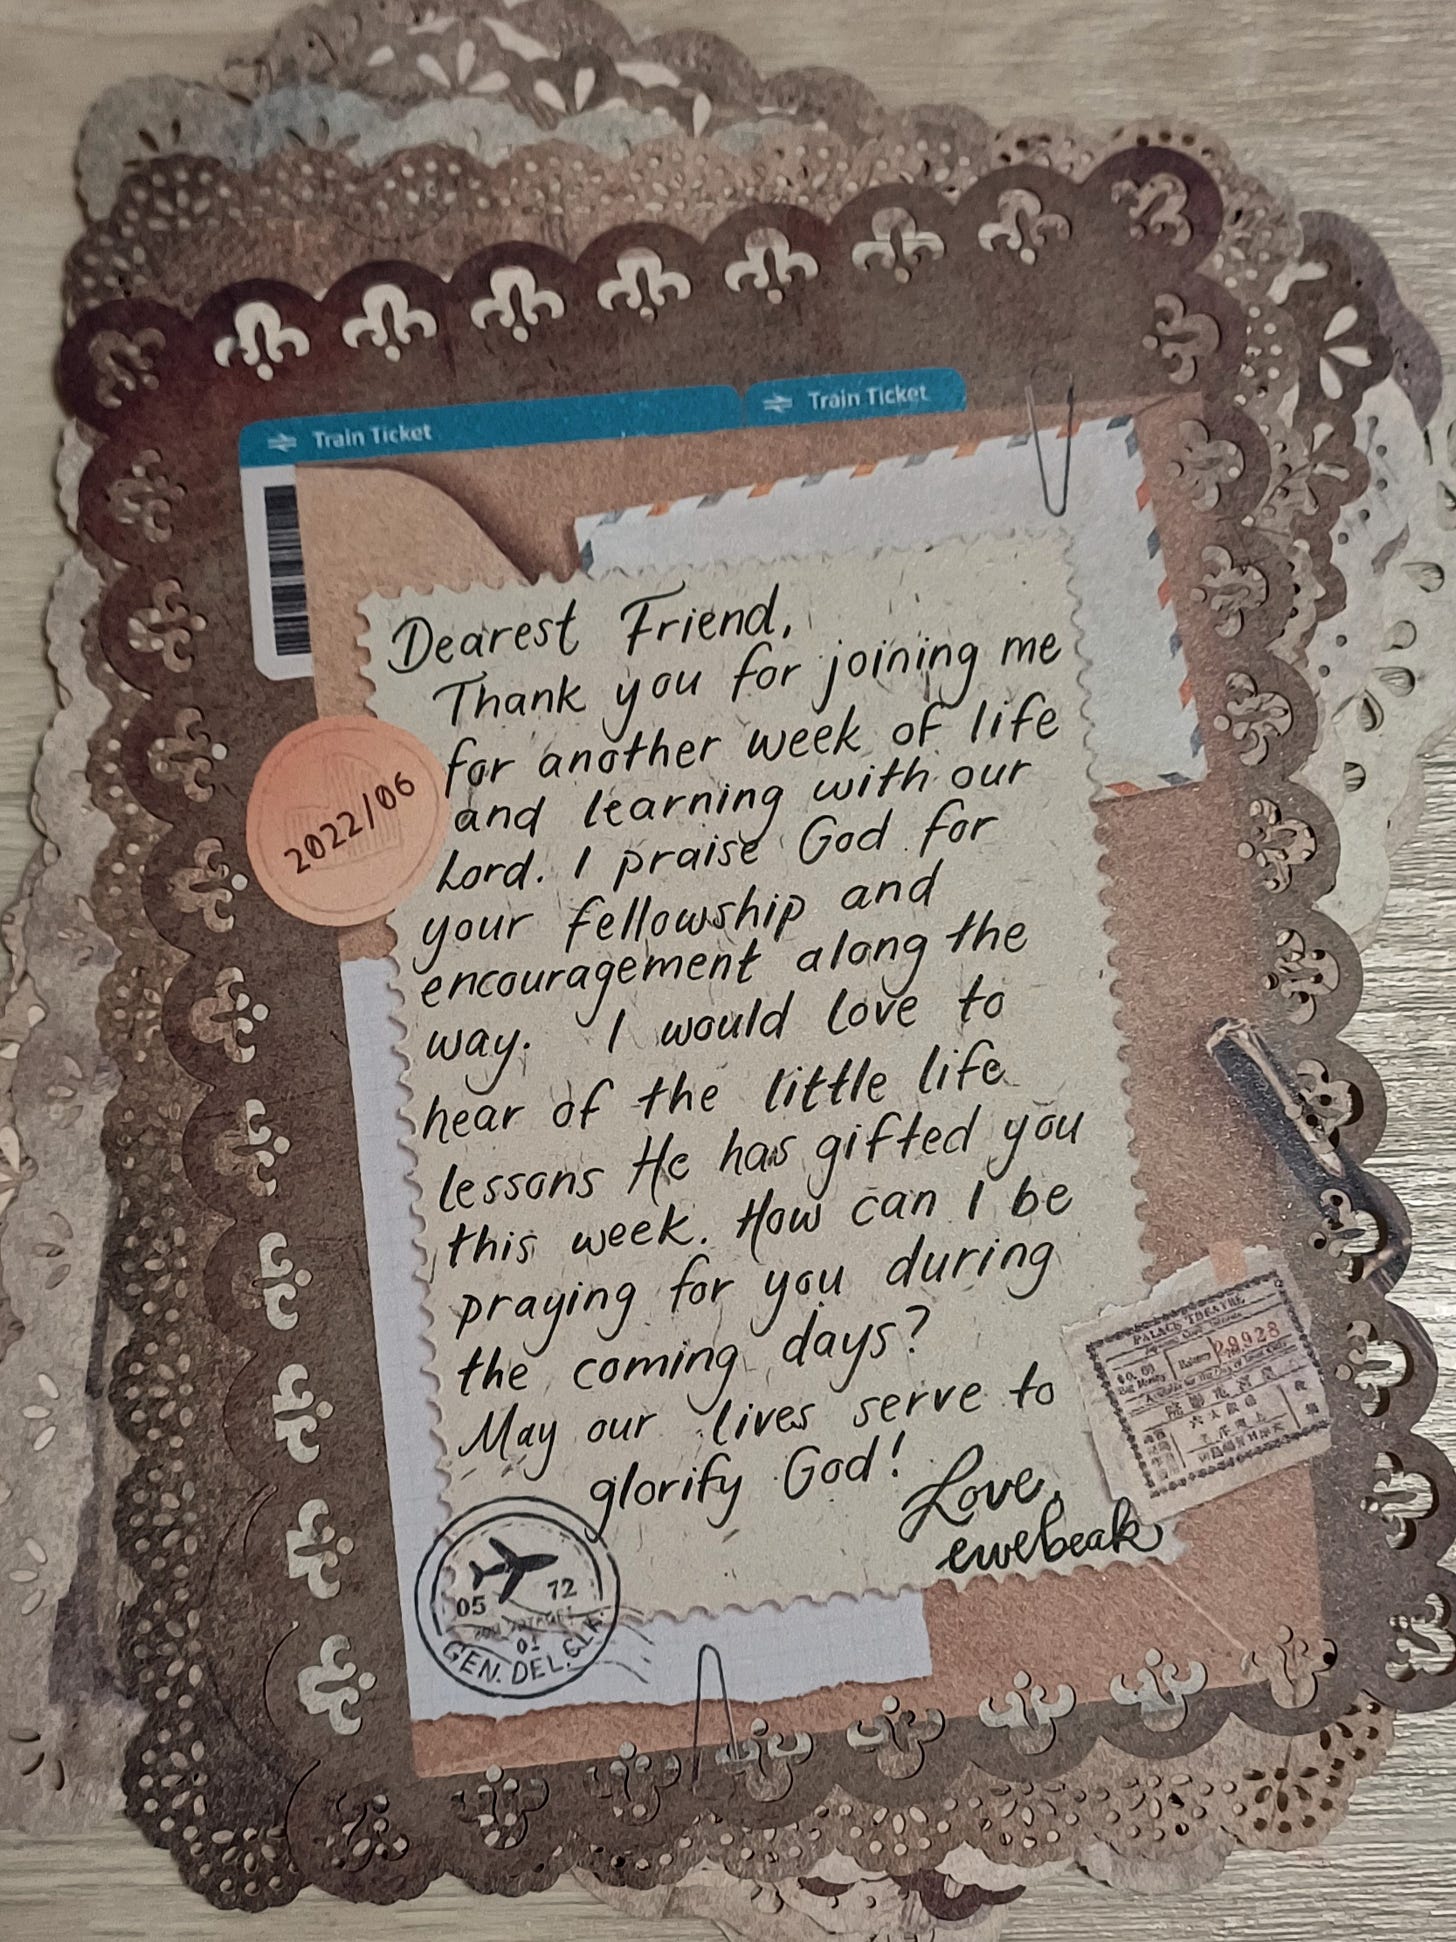 Train Ticket
Train Ticket
Dearest Friend,
Thank you for joining me
for another week of life
and learning with our
Lord. I praise God for
your fellowship and
encouragement along the
way. I would love to
hear of the little life
lessons He has gifted you
this week. How can I be
praying for you during
the coming days?
May our lives serve to
glorify God!
Love,
ewebeak
2022/06
05 72
01
GEN. DEL.
PALACE THEATRE
29928